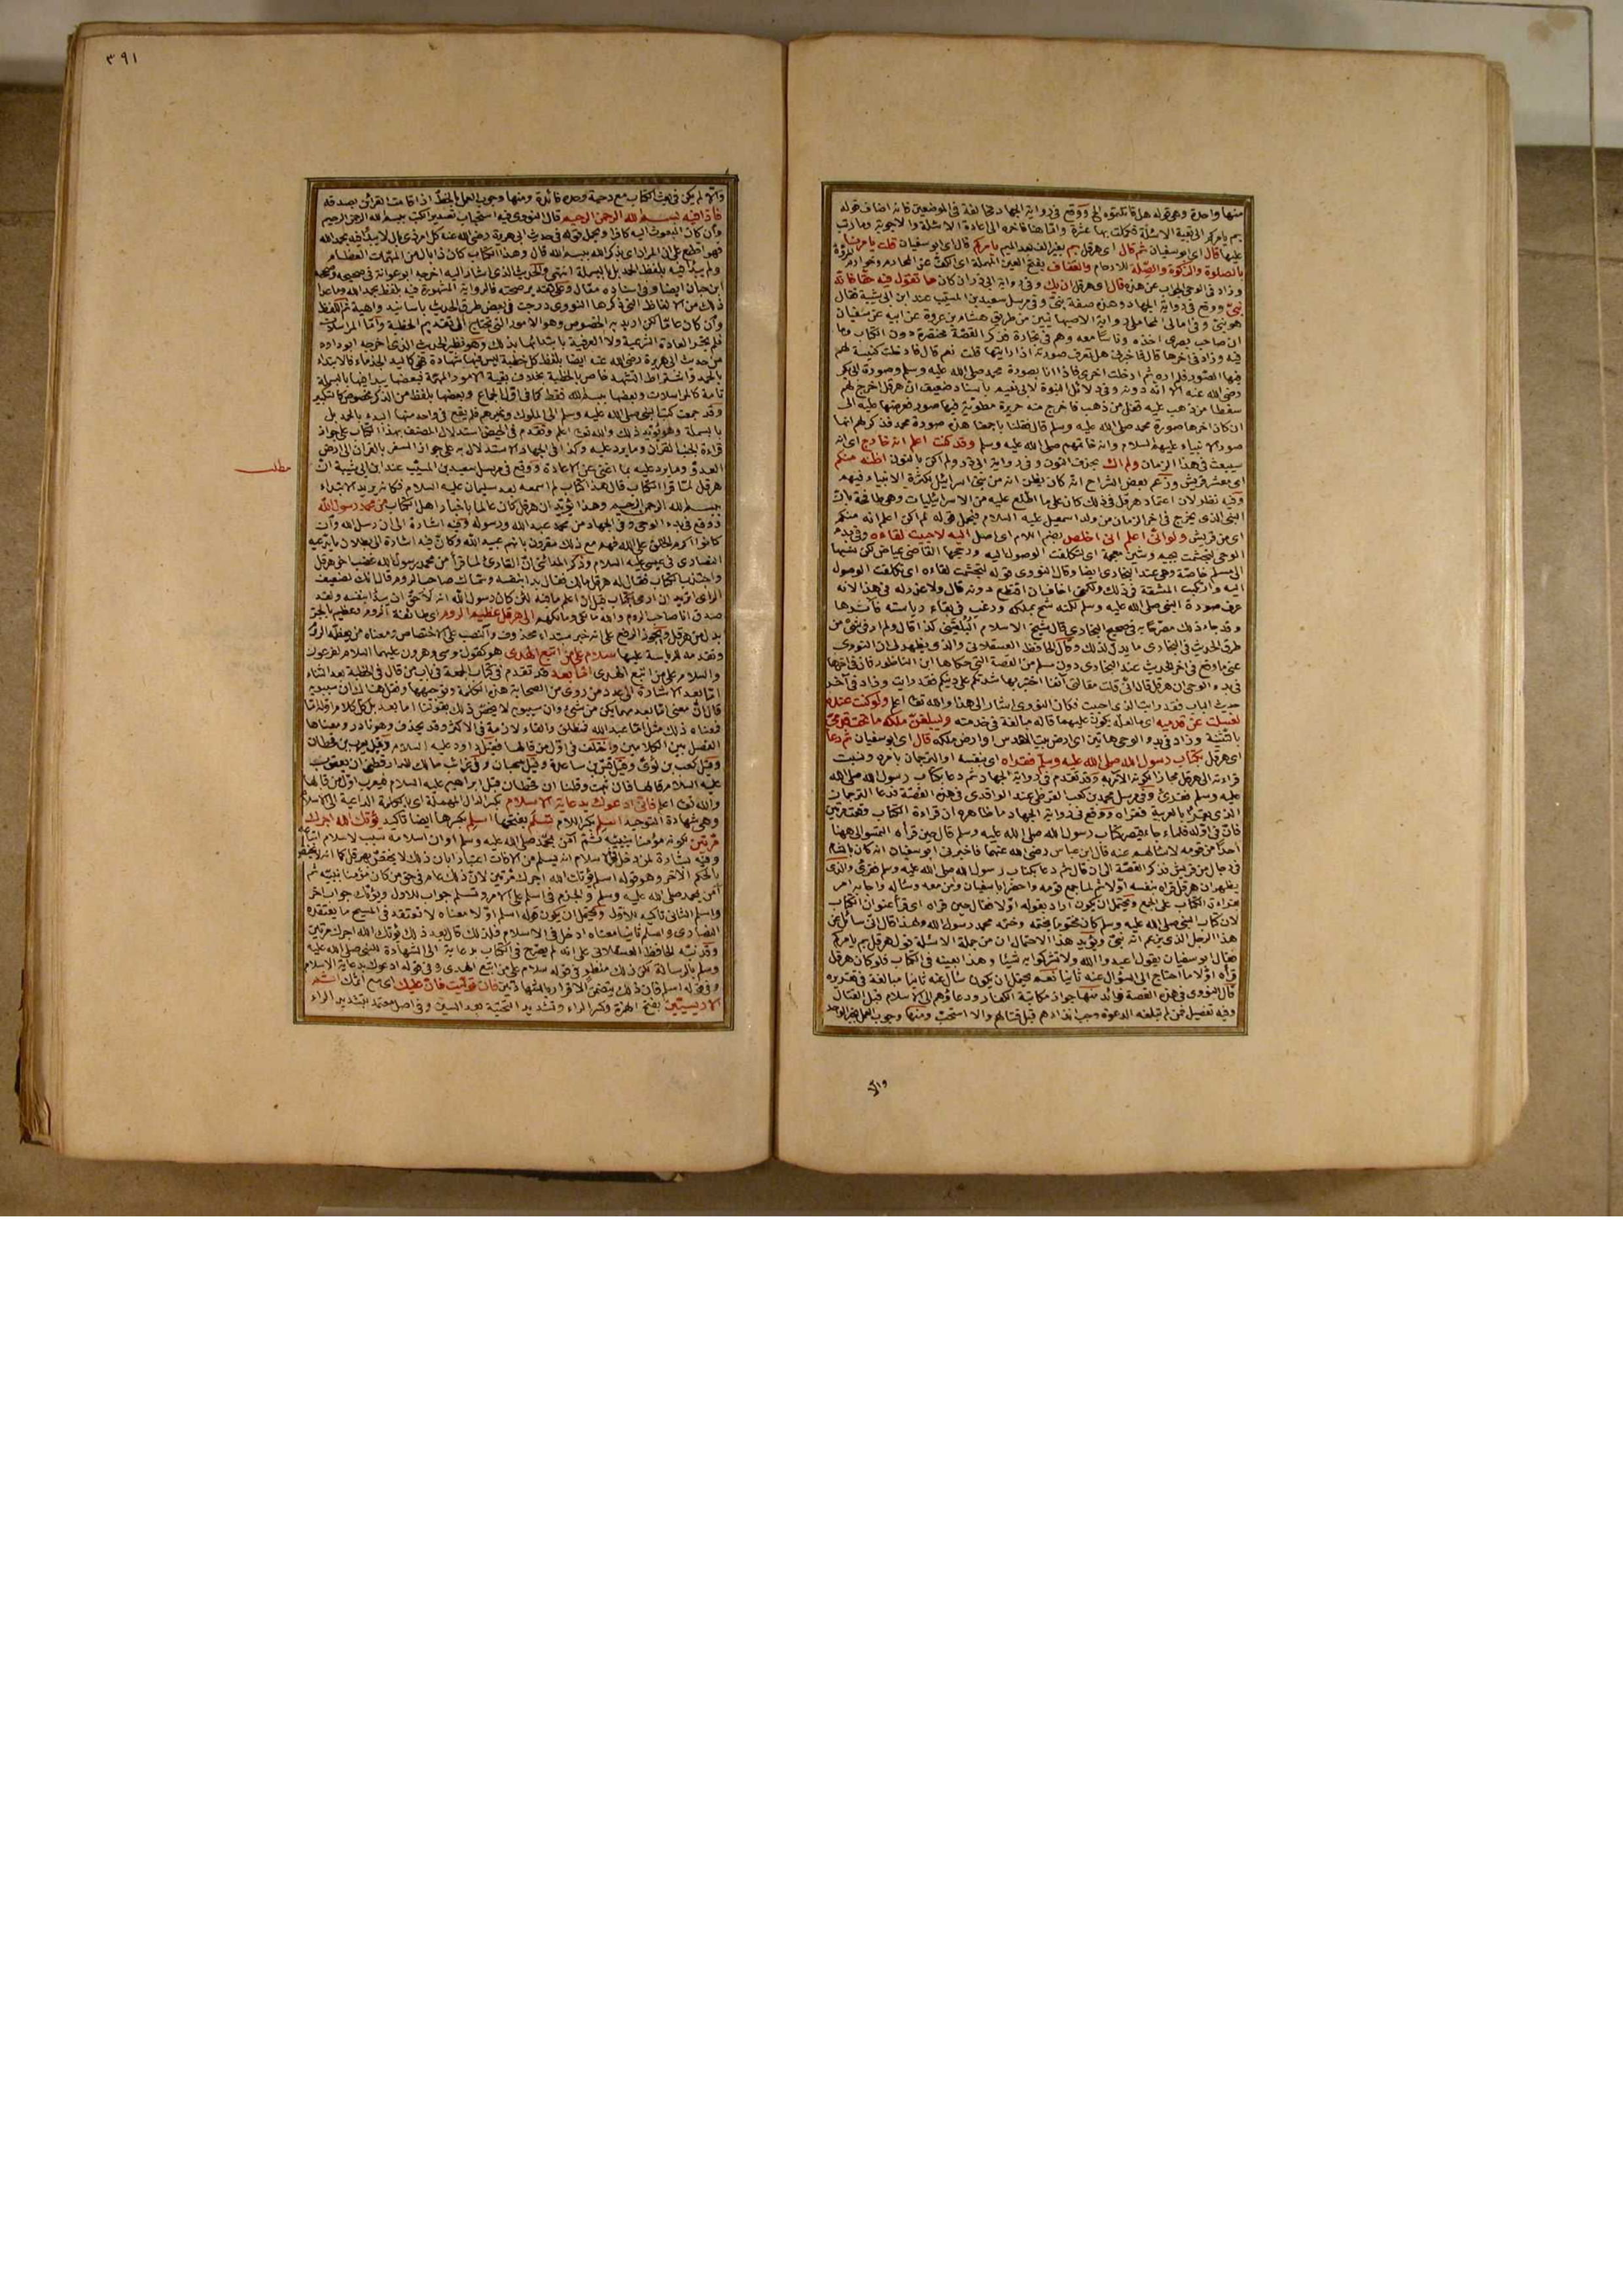 منها واحدة وهي قوله هل قاتلتموه الخ ووقع في رواية الجهاد مخالفة في الموضعين كانه اضاف قوله
بم يامركم الى بقية الاسئلة فكملت بها عشرة واما هنا فاخره الى اعادة الاسئلة والاجوبة وما رتب
عليها قال اي ابو سفيان ثم قال اي هرقل بم بغير الف بعد الميم يامركم قال اي ابو سفيان قلت يامرنا
بالصلوة والزكوة والصلة للارحام والعفاف بفتح العين المهملة اي الكف عن المحارم وخوارم المروة
وزاد في الوحي الجواب عن هذه قال اي هرقل ان يك وفي رواية ابي ذر ان كان ما تقول فيه حقا فانه
نبي ووقع في رواية الجهاد وهذه صفة نبي وفي مرسل سعيد بن المسيب عند ابن ابي شيبة فقال
هو نبي وفي امالي المحاملي رواية الاصبهانيين من طريق هشام بن عروة عن ابيه عن سفيان
ان صاحب بصرى اخذه وناسا معه وهم في تجارة فذكر القصة مختصرة دون الكتاب وما
فيه وزاد في اخرها قال فاخبرني هل تعرف صورته اذا رايتها قلت نعم قال فادخلت كنيسة لهم
فيها الصور فلم اره ثم ادخلت اخرى فاذا انا بصورة محمد صلى الله عليه وسلم وصورة ابي بكر
رضي الله عنه الا انه دونه وفي دلائل النبوة لابي نعيم باسناد ضعيف ان هرقل اخرج لهم
سفطا من ذهب عليه قفل من ذهب فاخرج منه حريرة مطوية فيها صور فعرضها عليه الى
ان كان اخرها صورة محمد صلى الله عليه وسلم قال فقلنا باجمعنا هذه صورة محمد فذكر لهم انها
صور الانبياء عليهم السلام وانه خاتمهم صلى الله عليه وسلم وقد كنت اعلم انه خارج اي انه
سيبعث في هذا الزمان ولم اك بحذف النون وفي رواية ابي ذر ولم اكن بالنون اظنه منكم
اي معشر قريش وزعم بعض الشراح انه كان يظن انه من بني اسرائيل لكثرة الانبياء فيهم
وفيه نظر لان اعتماد هرقل في ذلك كان على ما اطلع عليه من الاسرائيليات وهي طافحة بان
النبي الذي يخرج في اخر الزمان من ولد اسمعيل عليه السلام فيحمل قوله لم اكن اعلم انه منكم
اي من قريش ولو اني اعلم اني اخلص بضم اللام اي اصل اليه لاحببت لقاءه وفي بدء
الوحي لتجشمت بجيم وشين معجمة اي لتكلفت الوصول اليه ورجحها القاضي عياض لكن نسبها
الى مسلم خاصة وهي عند البخاري ايضا وقال النووي قوله لتجشمت لقاءه اي تكلفت الوصول
اليه وارتكبت المشقة في ذلك ولكني اخاف ان اقتطع دونه قال ولا عذر له في هذا لانه
عرف صورة النبي صلى الله عليه وسلم لكنه شح بملكه ورغب في بقاء رياسته فآثرها
وقد جاء ذلك مصرحا به في صحيح البخاري قال شيخ الاسلام البلقيني كذا قال ولم ار في شئ من
طرق الحديث في البخاري ما يدل لذلك وقال الحافظ العسقلاني والذي يظهر لي ان النووي
عنى ما وقع في اخر الحديث عند البخاري دون مسلم من القصة التي حكاها ابن الناطور فان في اخرها
في بدء الوحي ان هرقل قال اني قلت مقالتي انفا اختبر بها شدتكم على دينكم فقد رايت وزاد في آخر
حديث الباب فقد رايت الذي احببت فكان النووي اشار الى هذا والله تعالى اعلم ولو كنت عنده
لغسلت عن قدميه اي ما لعله يكون عليهما قاله مبالغة في خدمته وليبلغن ملكه ما تحت قدمي
بالتثنية وزاد في بدء الوحي هاتين اي ارض بيت المقدس او ارض ملكه قال اي ابو سفيان ثم دعا
اي هرقل بكتاب رسول الله صلى الله عليه وسلم فقراه اي بنفسه او الترجمان بامره ونسبت
قراءته الى هرقل مجازا لكونه الآمر به وقد تقدم في رواية الجهاد ثم دعا بكتاب رسول الله صلى الله
عليه وسلم فقرئ وفي مرسل محمد بن كعب القرظي عند الواقدي في هذه القصة فدعا الترجمان
الذي يقرأ بالعربية فقراه ووقع في رواية الجهاد ما ظاهره ان قراءة الكتاب وقعت مرتين
فان في اوله فلما جاء قيصر كتاب رسول الله صلى الله عليه وسلم قال حين قرأه التمسوا لي ههنا
احدا من قومه لاسئالهم عنه قال ابن عباس رضي الله عنهما فاخبرني ابو سفيان انه كان بالشام
في رجال من قريش فذكر القصة الى ان قال ثم دعا بكتاب رسول الله صلى الله عليه وسلم فقرئ والذي
يظهر ان هرقل قراه بنفسه اولا ثم لما جمع قومه واحضر ابا سفيان ومن معه وسأله واجابه امر
بقراءة الكتاب على الجمع ويحتمل ان يكون اراد بقوله اولا فقال حين قراه اي قرأ عنوان الكتاب
لان كتاب النبي صلى الله عليه وسلم كان مختوما بختمه وختمه محمد رسول الله ولهذا قال اني سائل عن
هذا الرجل الذي يزعم انه نبي ويؤيد هذا الاحتمال ان من جملة الاسئلة قول هرقل بم يامركم
فقال ابو سفيان يقول اعبدوا الله ولا تشركوا به شيئا وهذا بعينه في الكتاب فلو كان هرقل
قرأه اولا ما احتاج الى السؤال عنه ثانيا نعم يحتمل ان يكون سأل عنه ثانيا مبالغة في تقريره
قال النووي في هذه القصة فوائد منها جواز مكاتبة الكفار ودعاؤهم الى الاسلام قبل القتال
وفيه تفصيل فمن لم تبلغه الدعوة وجب انذارهم قبل قتالهم والا استحب ومنها وجوب العمل بخبر الواحد
والا
٣٩١
والا لم يكن في بعث الكتاب مع دحية وحده فائدة ومنها وجوب العمل بالخط اذا قامت القرائن بصدقه
فاذا فيه بسم الله الرحمن الرحيم قال النووي فيه استحباب تصدير الكتب ببسم الله الرحمن الرحيم
وان كان المبعوث اليه كافرا ويحمل قوله في حديث ابي هريرة رضي الله عنه كل امر ذي بال لا يبدأ فيه بحمد الله
فهو اقطع على ان المراد اي بذكر الله ببسم الله قال وهذا الكتاب كان ذا بال من المهمات العظام
ولم يبدأ فيه بلفظ الحمد بل بالبسملة انتهى والحديث الذي اشار اليه اخرجه ابو عوانة في صحيحه وصححه
ابن حبان ايضا وفي اسناده مقال وعلى تقدير صحته فالرواية المشهورة فيه بلفظ بحمد الله وما عدا
ذلك من الالفاظ التي ذكرها النووي وردت في بعض طرق الحديث باسانيد واهية ثم اللفظ
وان كان عاما لكن اريد به الخصوص وهو الامور التي تحتاج الى تقديم الخطبة واما المراسلات
فلم تجر العادة الشرعية ولا العرفية بابتدائها بذلك وهو نظير الحديث الذي اخرجه ابو داود
من حديث ابي هريرة رضي الله عنه ايضا بلفظ كل خطبة ليس فيها شهادة فهي كاليد الجذماء فالابتداء
بالحمد واشتراط التشهد خاص بالخطبة بخلاف بقية الامور المهمة فبعضها يبدأ فيها بالبسملة
تامة كالمراسلات وبعضها ببسم الله فقط كما في اول الجماع وبعضها بلفظ من الذكر مخصوص كالتكبير
وقد جمعت كتب النبي صلى الله عليه وسلم الى الملوك وغيرهم فلم يقع في واحد منها البدء بالحمد بل
بالبسملة وهو يؤيد ذلك والله تعالى اعلم وتقدم في الحيض استدلال المصنف بهذا الكتاب على جواز
قراءة الجنب القرآن وما يرد عليه وكذا في الجهاد الاستدلال به على جواز السفر بالقرآن الى ارض
العدو وما يرد عليه بما اغنى عن الاعادة ووقع في مرسل سعيد بن المسيب عند ابن ابي شيبة ان
مطلب
هرقل لما قرا الكتاب قال هذا كتاب لم اسمعه بعد سليمان عليه السلام فكانه يريد الابتداء
ببسم الله الرحمن الرحيم وهذا يؤيد ان هرقل كان عالما باخبار اهل الكتاب من محمد رسول الله
ووقع في بدء الوحي وفي الجهاد من محمد عبد الله ورسوله وفيه اشارة الى ان رسل الله وان
كانوا اكرم الخلق على الله فهم مع ذلك مقرون بانهم عبيد الله وكأن فيه اشارة الى بطلان ما يدعيه
النصارى في عيسى عليه السلام وذكر المدائني ان القارئ لما قرأ من محمد رسول الله غضب اخو هرقل
واجتذب الكتاب فقال له هرقل مالك فقال بدا بنفسه وسماك صاحب الروم قال انك لضعيف
الرأي اتريد ان ارمي بكتاب قبل ان اعلم ما فيه لئن كان رسول الله انه لأحق ان يبدأ بنفسه ولقد
صدق انا صاحب الروم والله مالكي ومالكهم الى هرقل عظيم الروم اي طائفة الروم وعظيم بالجر
بدل من هرقل ويجوز الرفع على انه خبر مبتداء محذوف والنصب على الاختصاص ومعناه من يعظمه الروم
وتقدمه للرياسة عليها سلام على من اتبع الهدى هو كقول موسى وهرون عليهما السلام لفرعون
والسلام على من اتبع الهدى اما بعد قد تقدم في كتاب الجمعة في باب من قال في الخطبة بعد الثناء
اما بعد الاشارة الى عدد من روى من الصحابة هذه الكلمة وتوجيهها ونقل هناك ان سيبويه
قال ان معنى اما بعد مهما يكن من شئ وان سيبويه لا يخص ذلك بقولنا اما بعد بل كل كلام اوله اما
فمعناه ذلك مثل اما عبد الله فمنطلق والفاء لازمة في الاكثر وقد يحذف وهو نادر ومعناها
الفصل بين الكلامين واختلف في اول من قالها فقيل داود عليه السلام وقيل يعرب بن قحطان
وقيل كعب بن لؤي وقيل قس بن ساعدة وقيل سحبان وفي غرائب مالك للدارقطني ان يعقوب
عليه السلام قالها فان ثبت وقلنا ان قحطان قبل ابراهيم عليه السلام فيعرب اول من قالها
والله تعالى اعلم فاني ادعوك بدعاية الاسلام بكسر الدال المهملة اي بالكلمة الداعية الى الاسلام
وهي شهادة التوحيد اسلم بكسر اللام تسلم بفتحها اسلم بكسرها ايضا تاكيد يؤتك الله اجرك
مرتين لكونه مؤمنا بنبيه ثم آمن بمحمد صلى الله عليه وسلم او ان اسلامه سبب لاسلام اتباعه
وفيه بشارة لمن دخل في الاسلام انه يسلم من الآفات اعتبارا بان ذلك لا يختص بهرقل كما انه لا يختص
بالحكم الآخر وهو قوله اسلم يؤتك الله اجرك مرتين لان ذلك عام في حق من كان مؤمنا بنبيه ثم
آمن بمحمد صلى الله عليه وسلم والجزم في اسلم على الامر وتسلم جواب للاول ويؤتك جواب اخر
واسلم الثاني تاكيد للاول ويحتمل ان يكون قوله اسلم اولا معناه لا تعتقد في المسيح ما يعتقده
النصارى واسلم ثانيا معناه ادخل في الاسلام فلذلك قال بعد ذلك يؤتك الله اجرك مرتين
وقد نبه الحافظ العسقلاني على انه لم يصرح في الكتاب بدعايته الى الشهادة للنبي صلى الله عليه
وسلم بالرسالة لكن ذلك منطو في قوله سلام على من اتبع الهدى وفي قوله ادعوك بدعاية الاسلام
وفي قوله اسلم فان ذلك يتضمن الاقرار بالشهادتين فان توليت فان عليك اي مع اثمك اثم
الاريسيين بفتح الهمزة وكسر الراء وتشديد التحتية بعد السين وفي اصل معتمد بتشديد الراء